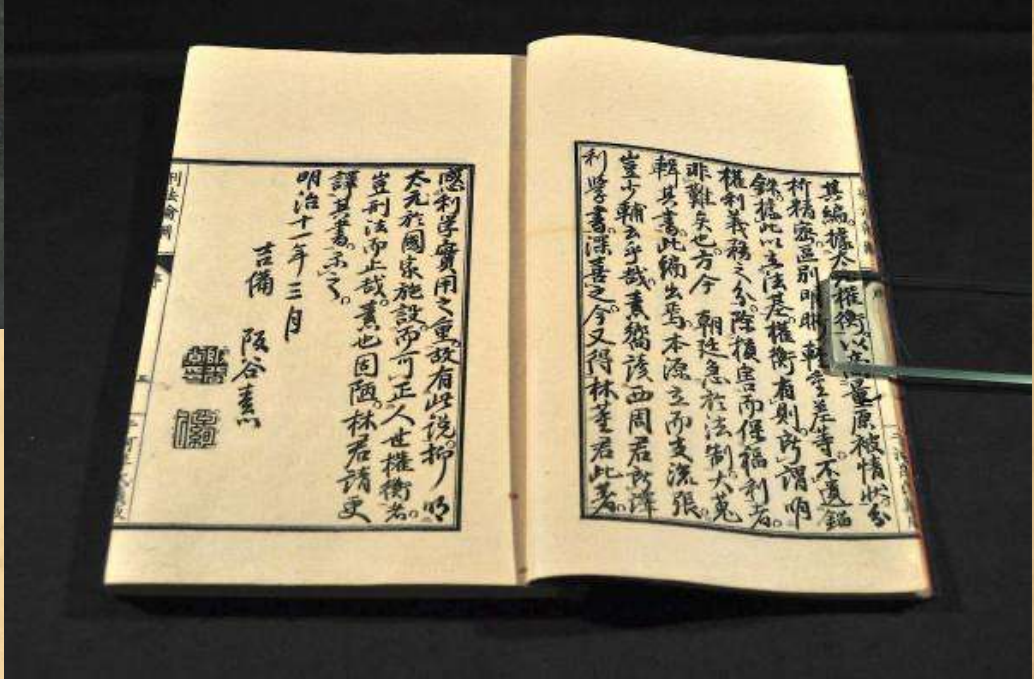 其編據太 權衡以 量原被情狀分
析精密區別明晰輕重差等不遺錙
銖據此以立法基權衡有則所謂明
權利義務之分除損害而保福利者
非難矣也方今 朝廷急於法制大蒐
輯其書此編出焉本源立而支流張
豈少輔云乎哉素嚮讀西周君所譯
利學書深喜之今又得林董君此著
感利學實用之重故有此說抑 明
太元於國家施設而可正人世權衡者
豈刑法而止哉素也固陋林君請更
譯其書示之
明治十一年三月
吉備 阪谷素
刑法論綱
序
五